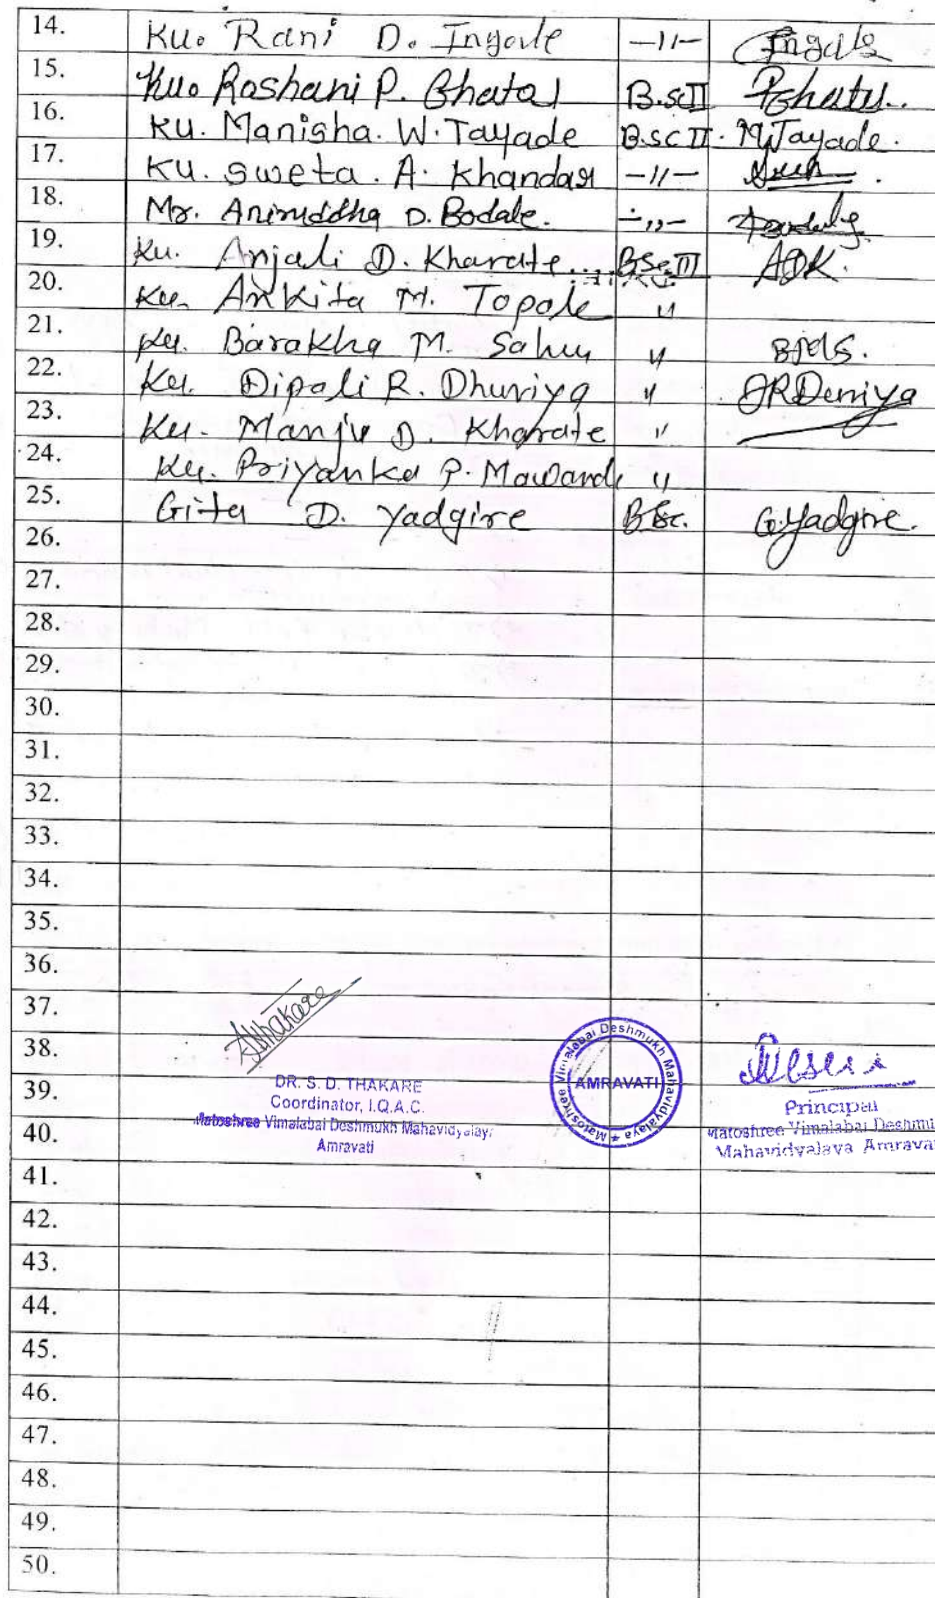 14. Ku. Rani D. Ingole -11- Ingole
15. Ku. Roshani P. Bhatal B.sc II
16. Ku. Manisha. W. Tayade B.sc II. M.Tayade.
17. Ku. sweta. A. Khandar -11-
18. Mr. Aniruddha D. Bodale. -,,-
19. Ku. Anjali D. Kharate.... BSc III ADK.
20. Ku. Ankita M. Topole "
21. Ku. Barakha M. Sahu " BMS.
22. Ku. Dipali R. Dhuriya " DRDuriya
23. Ku. Manju D. Kharate "
24. Ku. Priyanka P. Mawande "
25. Gita D. Yadgire B.Sc. G.Yadgire.
26.
27.
28.
29.
30.
31.
32.
33.
34.
35.
36.
37. Thakare
38.
39.
40.
DR. S. D. THAKARE
Coordinator, I.Q.A.C.
Matoshree Vimalabai Deshmukh Mahavidyalay
Amravati
Matoshree Vimalabai Deshmukh Mahavidyalaya
AMRAVATI
Principal
Matoshree Vimalabai Deshmu
Mahavidyalaya Amrava
41.
42.
43.
44.
45.
46.
47.
48.
49.
50.